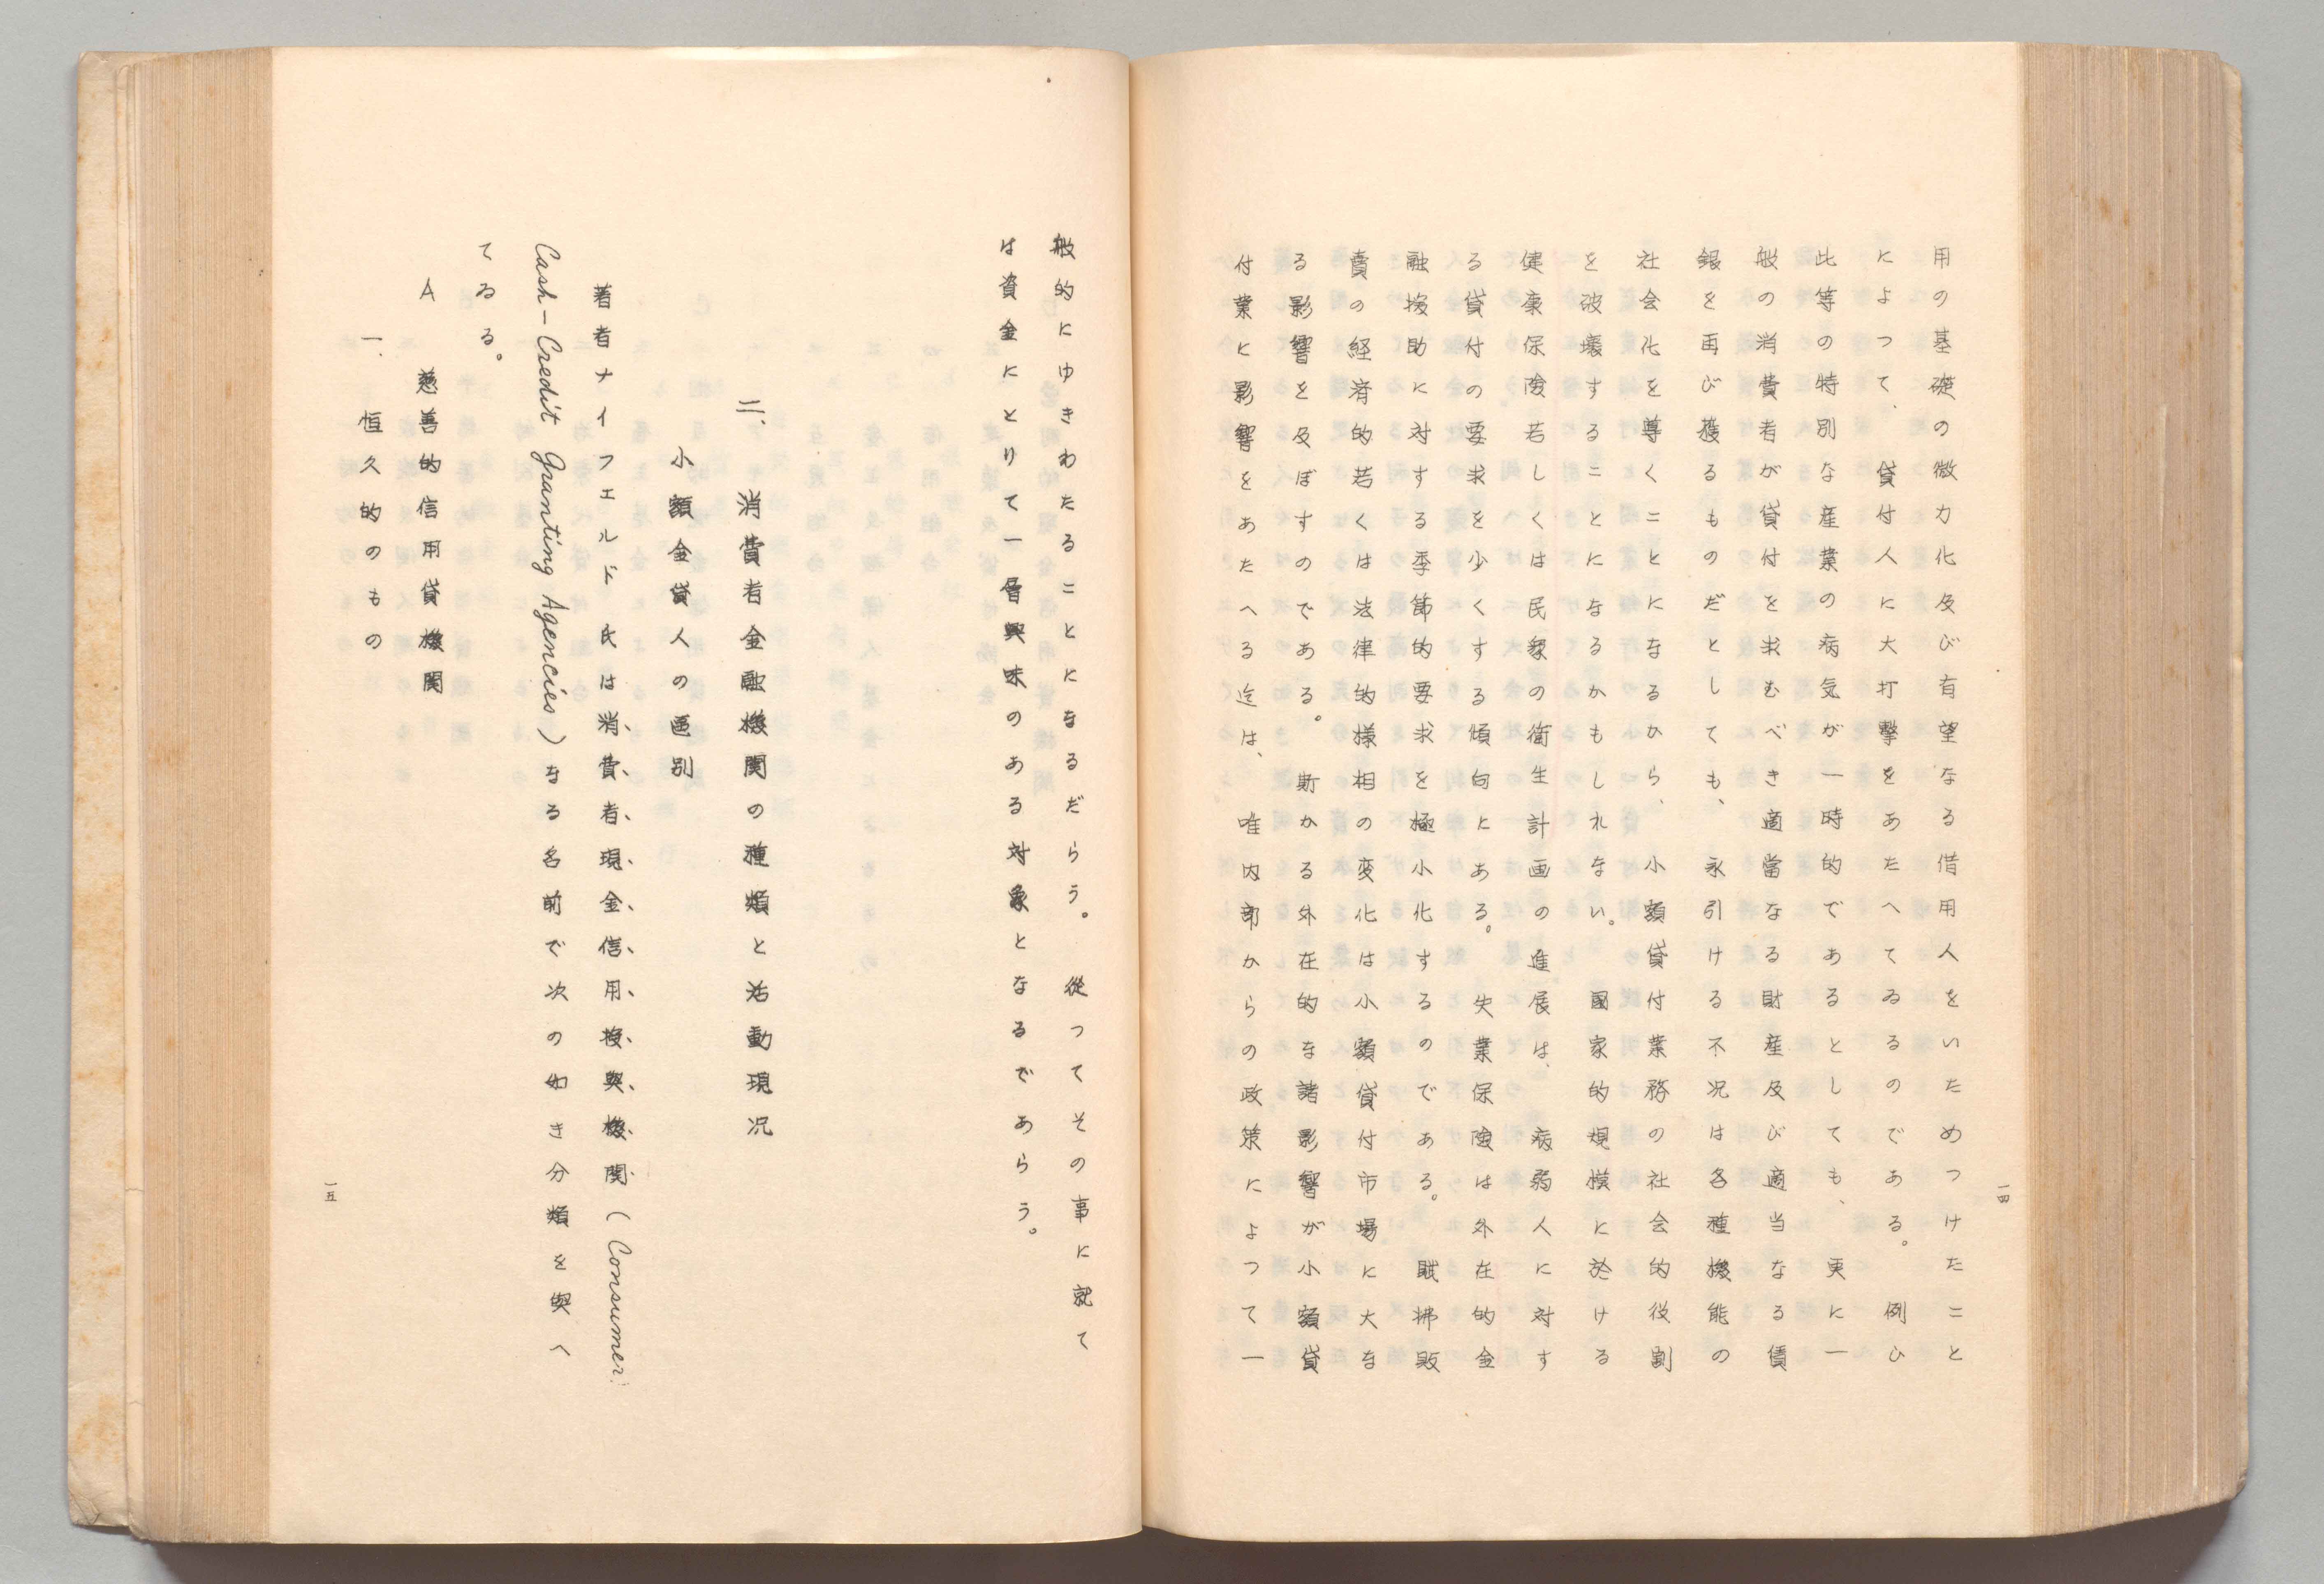 用の基礎の微力化及び有望なる借用人をいためつけたこと
によつて、貸付人に大打撃をあたへてゐるのである。例ひ
此等の特別な産業の病気が一時的であるとしても、更に一
般の消費者が貸付を求むべき適當なる財産及び適当なる賃
銀を再び獲るものだとしても、永引ける不況は各種機能の
社会化を導くことになるから、小額貸付業務の社会的役割
を破壊することになるかもしれない。國家的規模に於ける
健康保険若しくは民衆の衛生計画の進展は、病弱人に対す
る貸付の要求を少くする傾向にある。失業保険は外在的金
融援助に対する季節的要求を極小化するのである。賦拂販
賣の経済的若くは法律的様相の変化は小額貸付市場に大な
る影響を及ぼすのである。斯かる外在的な諸影響が小額貸
付業に影響をあたへる迄は、唯内部からの政策によつて一
一四
般的にゆきわたることになるだらう。従つてその事に就て
は資金にとりて一層興味のある対象となるであらう。
二、消費者金融機関の種類と活動現況
小額金貸人の區別
著者ナイフエルド氏は消、費、者、現、金、信、用、授、與、機、関、（Consumer
Cash-Credit Granting Agencies）なる名前で次の如き分類を與へ
てゐる。
A 慈善的信用貸機関
一、恒久的のもの
一五